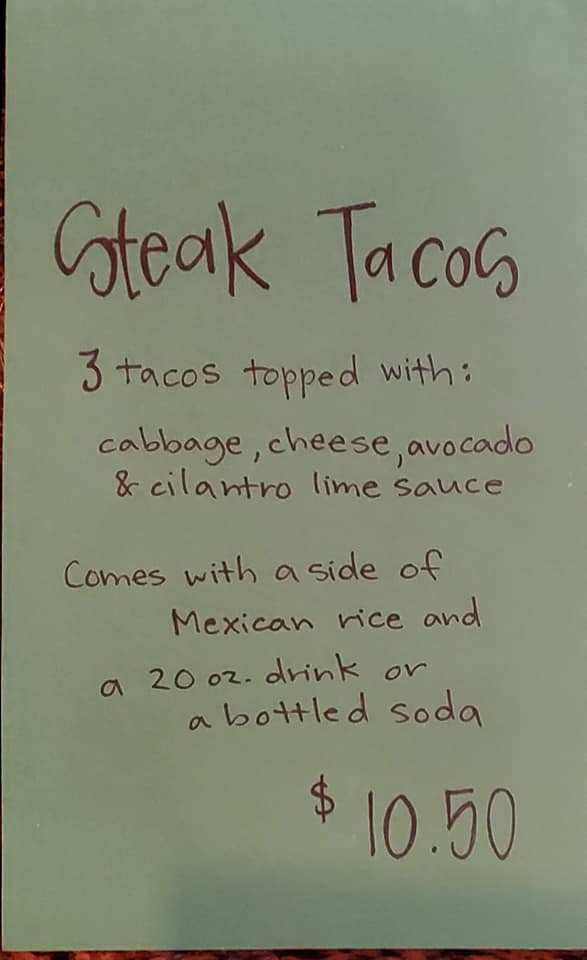 Steak Tacos
3 tacos topped with:
cabbage, cheese, avocado
& cilantro lime sauce
Comes with a side of
Mexican rice and
a 20 oz. drink or
a bottled soda
$10.50